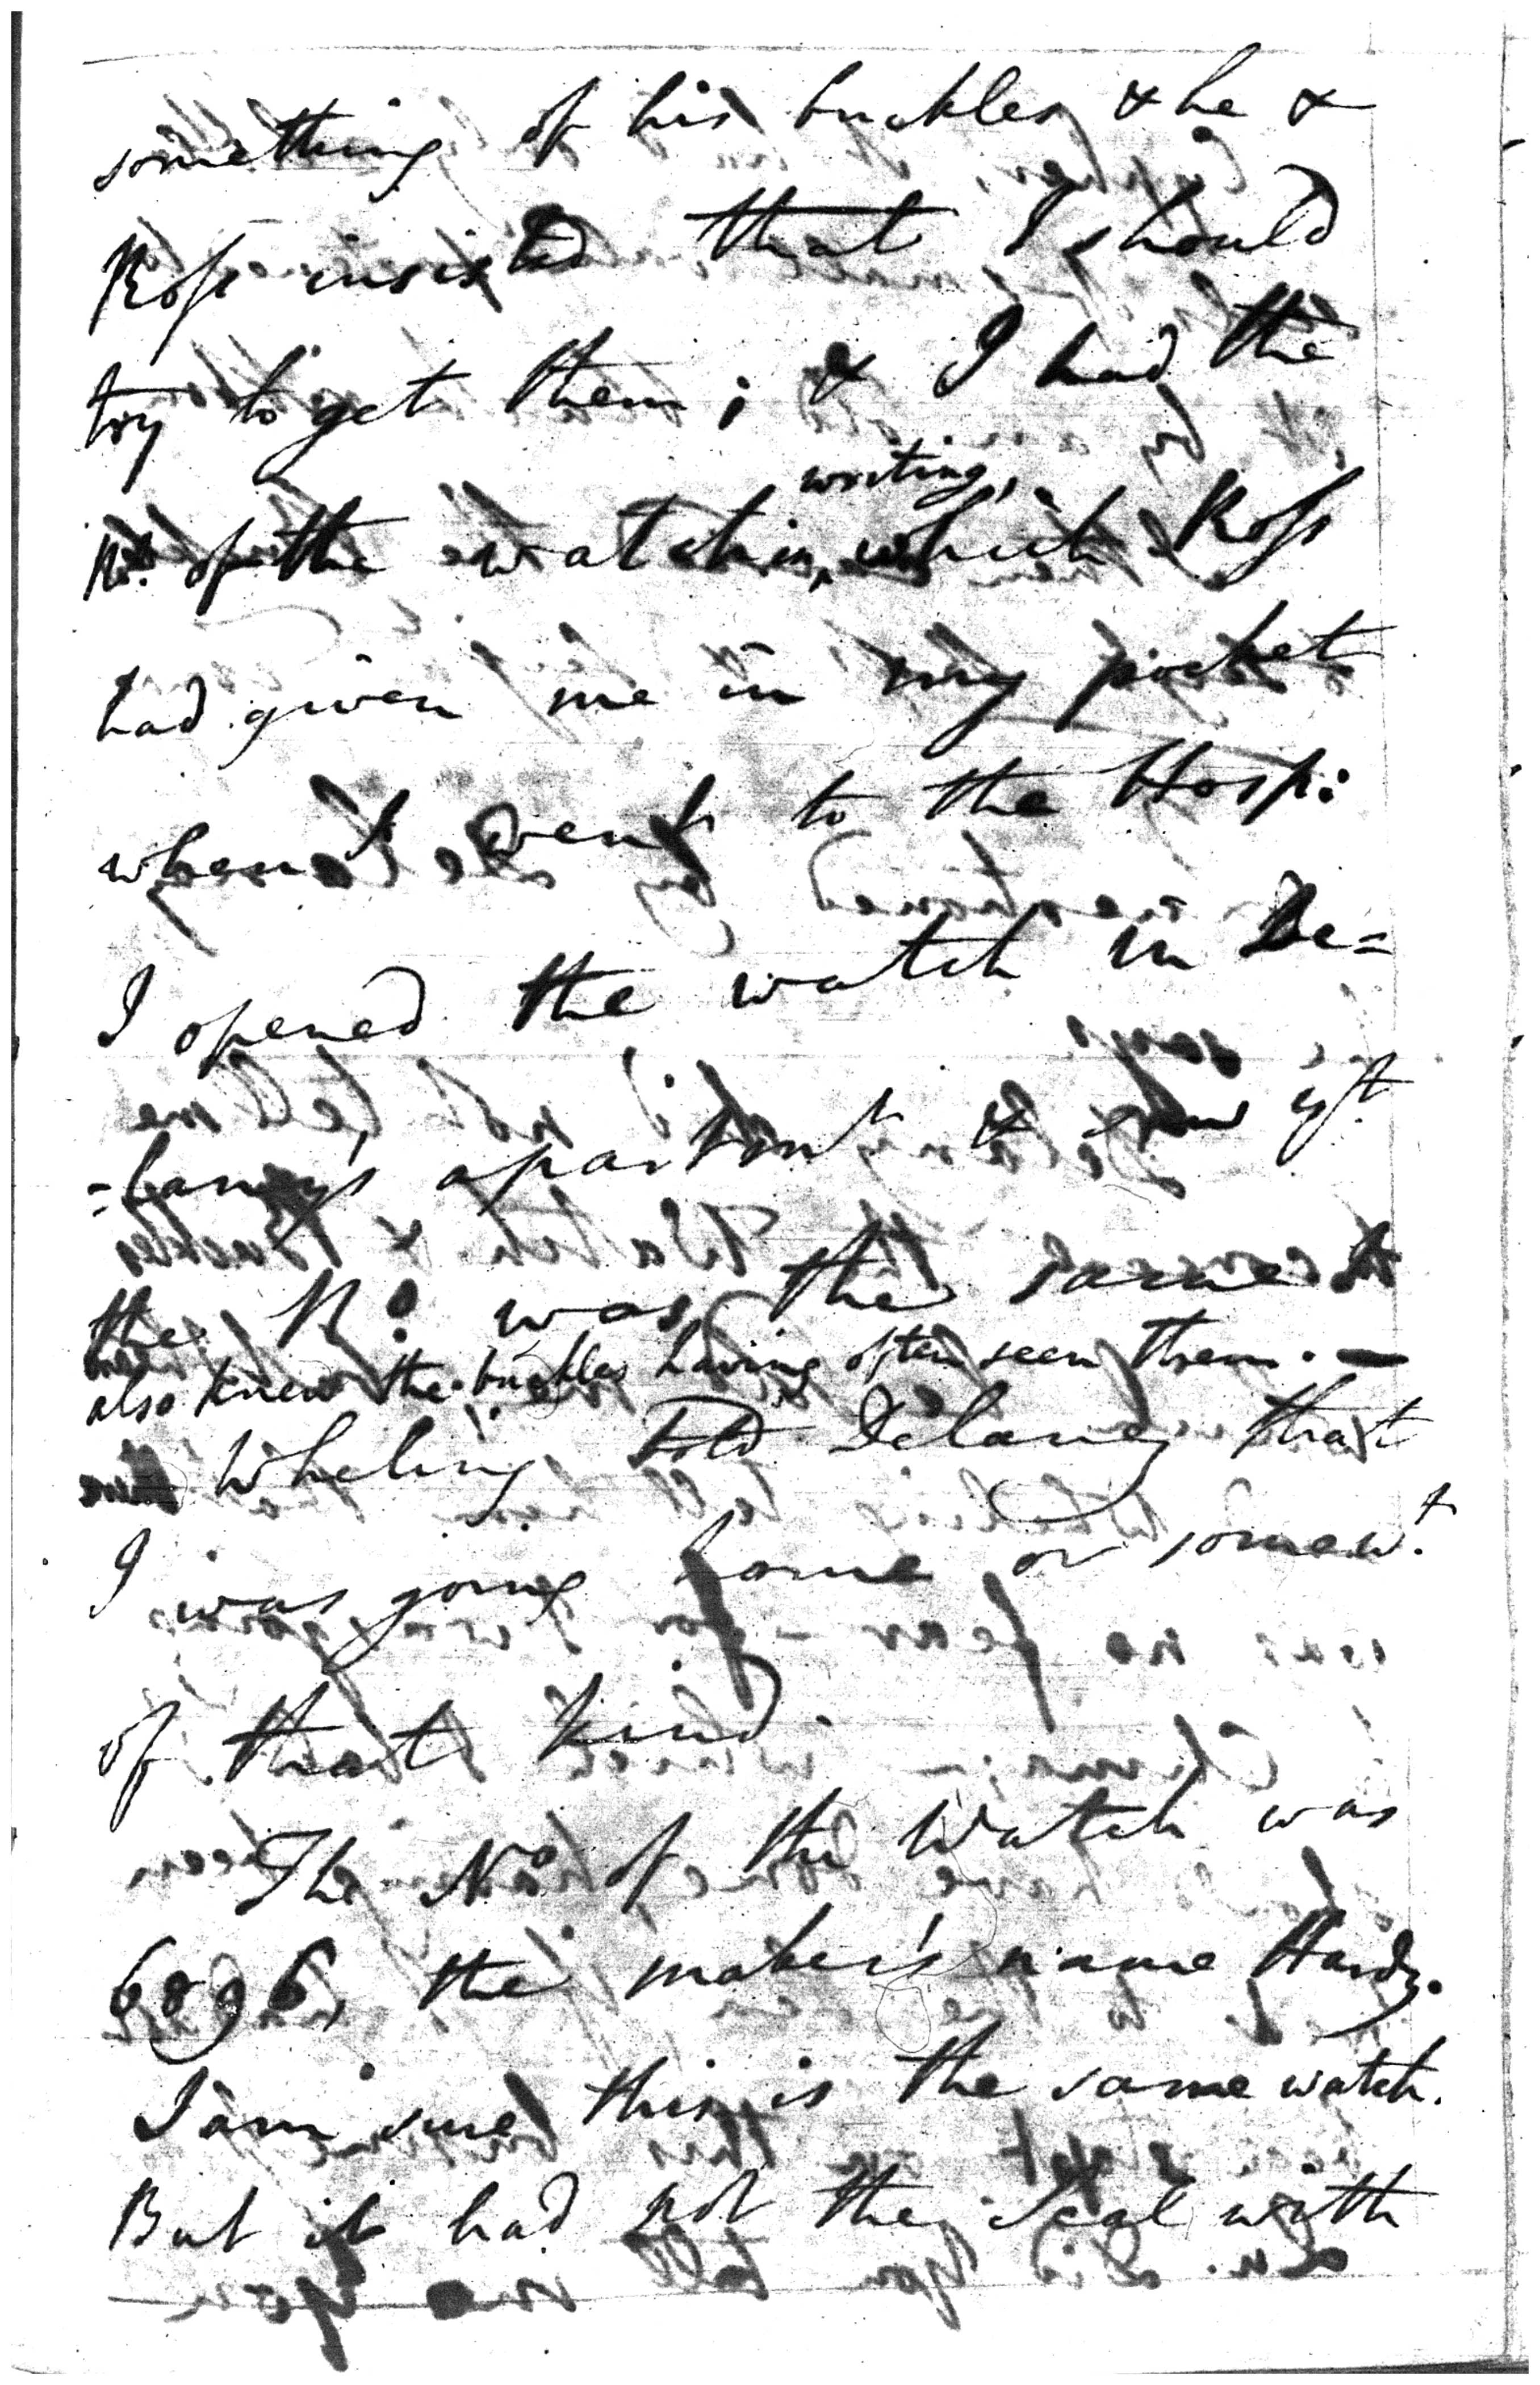 something of his buckles & he &
Ross insisted that I should
try to get them; & I had the
No. of the watch in writing, which Ross
had given me in my pocket
when I went to the Hosp:
I opened the watch in De=
=laney's apartmt & saw yt
the No. was the same &
also knew the buckles having often seen them. —
Wheling told Delaney that
I was going home or somewt.
of that kind.
The No of the Watch was
6896, the maker's name Hardy.
I am sure this is the same watch.
But it had not the seal with